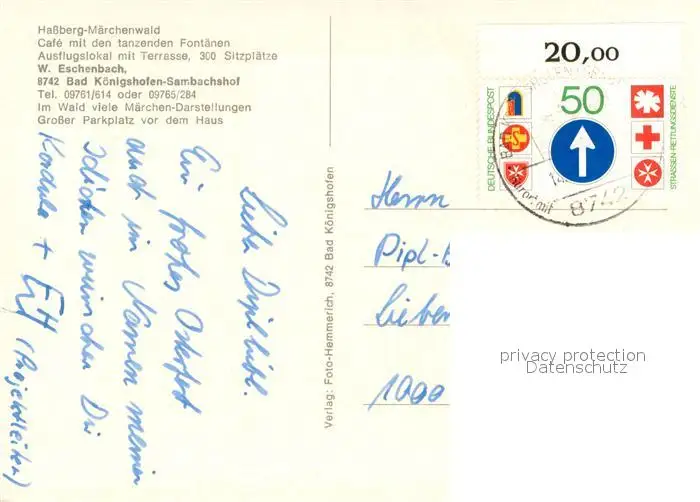 Haßberg-Märchenwald
Café mit den tanzenden Fontänen
Ausflugslokal mit Terrasse, 300 Sitzplätze
W. Eschenbach,
8742 Bad Königshofen-Sambachshof
Tel. 09761/614 oder 09765/284
Im Wald viele Märchen-Darstellungen
Großer Parkplatz vor dem Haus
Ein frohes Osterfest
auch im Namen meiner
Idioten wünschen Dir
Kordula +
(Projektleiter)
Verlag: Foto-Hemmerich, 8742 Bad Königshofen
20,00
DEUTSCHE BUNDESPOST
50
STRASSEN-RETTUNGSDIENSTE
8742
Herrn
Dipl-
Lieben
1000
privacy protection
Datenschutz